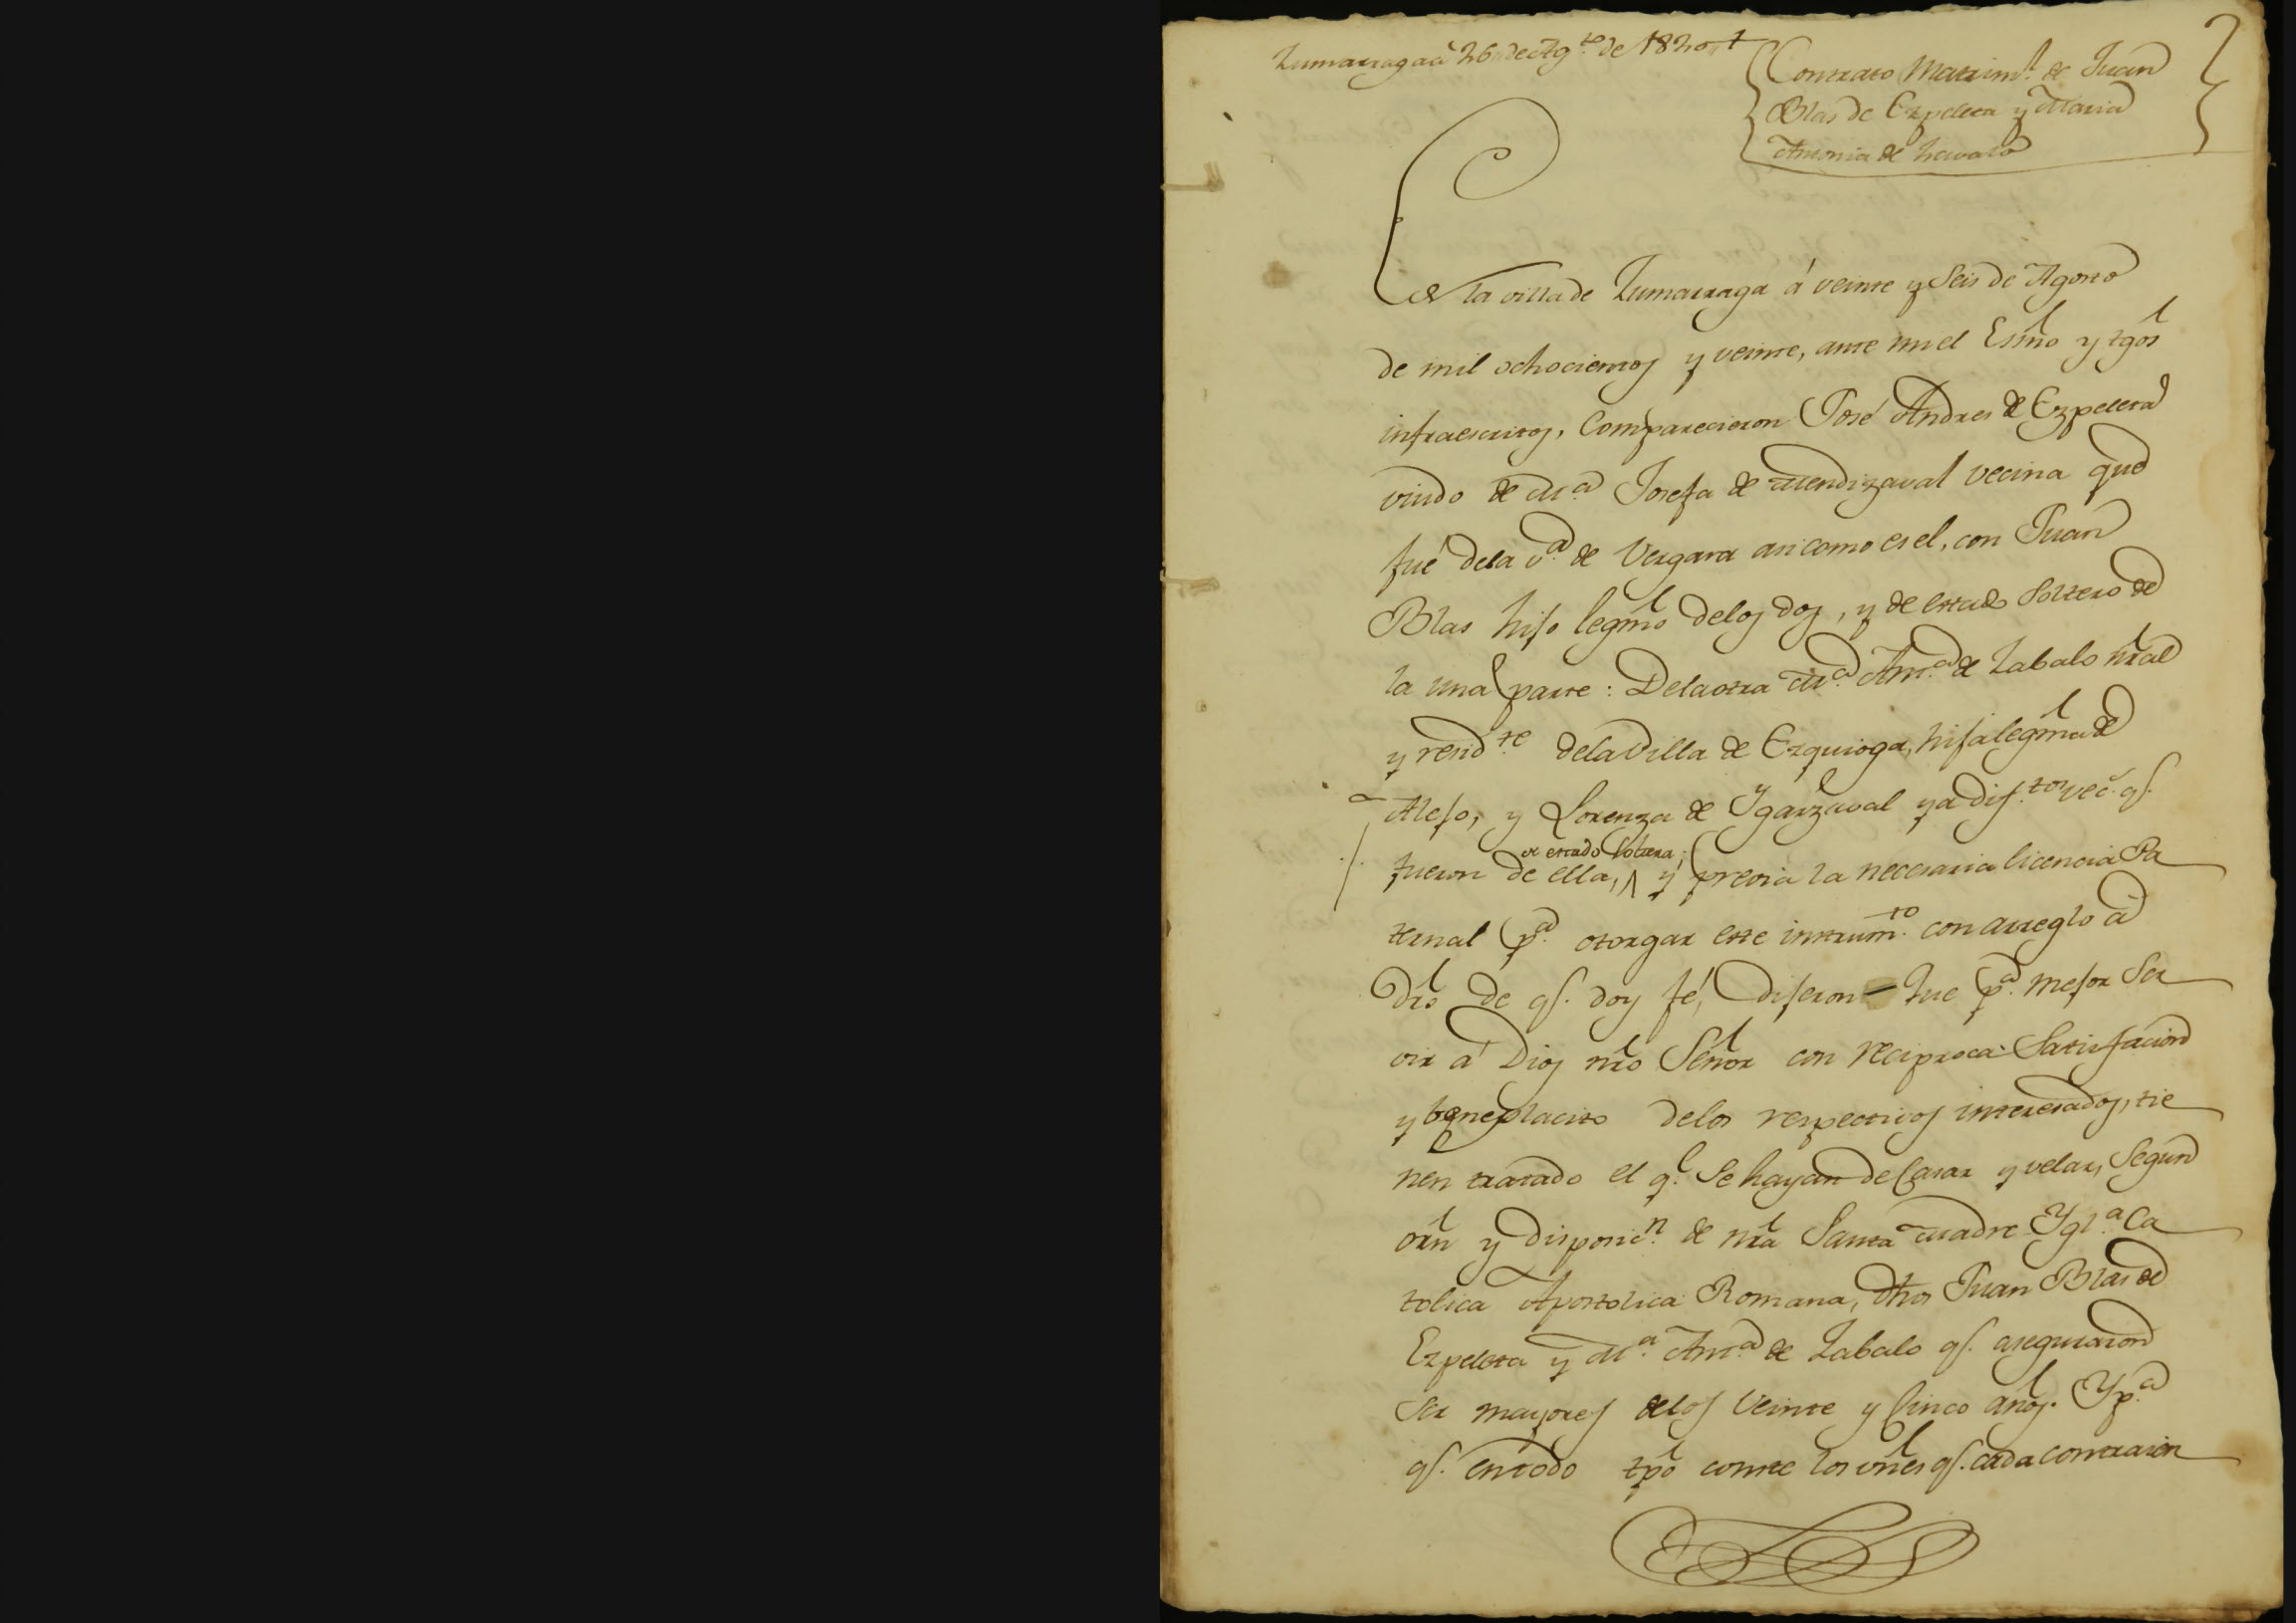 Zumarraga à 26 de Ag.to de 1820
Contrato Matrim.l de Juan
Blas de Ezpeleta y Maria
Antonia de Zavalo
En la villa de Zumarraga á veinte y Seis de Agosto
de mil ochocientos y veinte, ante mi el Esno y tgos
infraescritos, Comparecieron José Andres de Ezpeleta
viudo de M.a Josefa de Mendizaval vecina que
fué dela v.a de Vergara asi como es el, con Juan
Blas hijo legmo delos dos, y de estado Soltero de
la una parte: Dela otra M.a Ant.a de Zabalo nral
y resid.te dela Villa de Ezquioga, hija legma de
Alejo, y Lorenza de Ygarzaval ya dif.tos vec.s q.e
fueron de ella, de estado Soltera; y previa la necesaria licencia Pa
ternal p.a otorgar este instrum.to con arreglo a
dro de q.e doy fé, dijeron Que p.a mejor Ser
vir a Dios nro Señor con reciproca Satisfacion
y beneplacito delos respectivos interesados, tie
nen tratado el q.e Se hayan de Casar y velar, Segun
orn y disposic.n de nra Santa Madre Ygl.a Ca
tolica Apostolica Romana, dhos Juan Blas de
Ezpeleta y M.a Ant.a de Zabalo q.e aseguraron
Ser mayores delos Veinte y Cinco años. Y p.a
q.e en todo tpo conste los vnes q.e cada contraien